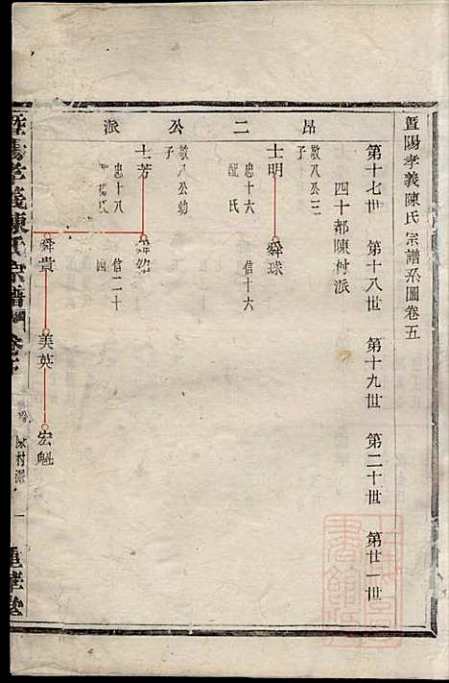 暨陽孝義陳氏宗譜系圖卷五
第十七世 第十八世 第十九世 第二十世 第廿一世
四十都陳村派
昂二公派
敬八公三子
士明
忠十六
舜球
信十六
敬八公幼子
士芳
忠十八
信二十
舜貴
美英
宏魁
暨陽孝義陳氏宗譜